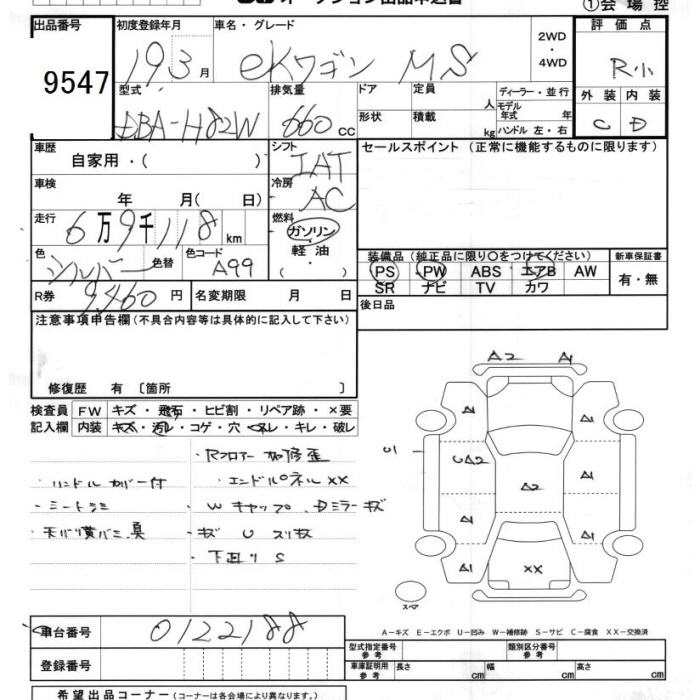 オークション出品申込書 ①会場控
出品番号 初度登録年月 車名・グレード 評価点
9547 19 3月 eKワゴン MS 2WD・4WD R小
型式 排気量 ドア 定員 人 ディーラー・並行 外装 内装
DBA-H82W 660cc 形状 積載 kg モデル年式 年 ハンドル 左・右 C D
車歴 自家用・( ) シフト IAT セールスポイント(正常に機能するものに限ります)
車検 年 月(日) 冷房 AC
走行 6万9千118km 燃料 ガソリン 軽油・( )
色 シルバー 色替 色コード A99
装備品(純正品に限り○をつけてください) 新車保証書
PS PW ABS エアB AW 有・無
SR ナビ TV カワ
R券 9460円 名変期限 月 日 後日品
注意事項申告欄(不具合内容等は具体的に記入して下さい)
修復歴 有〔箇所 〕
検査員 FW キズ・飛石・ヒビ割・リペア跡・×要
記入欄 内装 キズ・汚レ・コゲ・穴・スレ・キレ・破レ
・Rフロアー 加修歪
・ハンドルカバー付 ・エンドパネルXX
・シートシミ ・Wキャップ、Dミラーキズ
・キズ U スリキズ
・下廻りS
A2 A1
A1 A1
01 UA2 A2 A1
A1 A1
A1 XX A1
スペア
A-キズ E-エクボ U-凹み W-補修跡 S-サビ C-腐食 XX-交換済
車台番号 0122188
型式指定番号 参考 類別区分番号 参考
登録番号 車庫証明用 参考 長さ cm 幅 cm 高さ cm
希望出品コーナー(コーナーは各会場により異なります。)